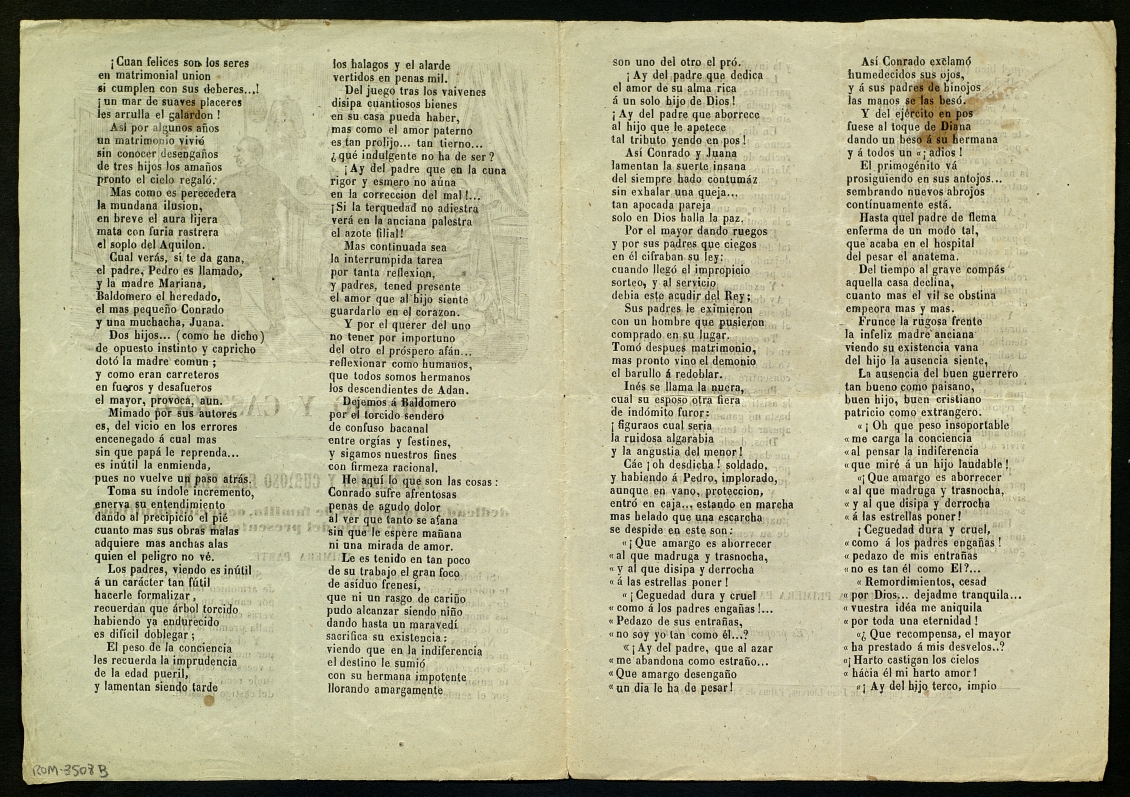 ¡Cuan felices son los seres
en matrimonial union
si cumplen con sus deberes...!
¡un mar de suaves placeres
les arrulla el galardon!
Así por algunos años
un matrimonio vivió
sin conocer desengaños
de tres hijos los amaños
pronto el cielo regaló.
Mas como es perecedera
la mundana ilusion,
en breve el aura lijera
mata con furia rastrera
el soplo del Aquilon.
Cual verás, si te da gana,
el padre, Pedro es llamado,
y la madre Mariana,
Baldomero el heredado,
el mas pequeño Conrado
y una muchacha, Juana.
Dos hijos... (como he dicho)
de opuesto instinto y capricho
dotó la madre comun;
y como eran carreteros
en fueros y desafueros
el mayor, provoca, aun.
Mimado por sus autores
es, del vicio en los errores
encenegado á cual mas
sin que papá le reprenda...
es inútil la enmienda,
pues no vuelve un paso atrás.
Toma su índole incremento,
enerva su entendimiento
dando al precipicio el pié
cuanto mas sus obras malas
adquiere mas anchas alas
quien el peligro no vé.
Los padres, viendo es inútil
á un carácter tan fútil
hacerle formalizar,
recuerdan que árbol torcido
habiendo ya endurecido
es difícil doblegar;
El peso de la conciencia
les recuerda la imprudencia
de la edad pueril,
y lamentan siendo tarde
los halagos y el alarde
vertidos en penas mil.
Del juego tras los vaivenes
disipa cuantiosos bienes
en su casa pueda haber,
mas como el amor paterno
es tan prolijo... tan tierno...
¿qué indulgente no ha de ser?
¡Ay del padre que en la cuna
rigor y esmero no aúna
en la correccion del mal!...
¡Si la terquedad no adiestra
verá en la anciana palestra
el azote filial!
Mas continuada sea
la interrumpida tarea
por tanta reflexion,
y padres, tened presente
el amor que al hijo siente
guardarlo en el corazon.
Y por el querer del uno
no tener por importuno
del otro el próspero afán...
reflexionar como humanos,
que todos somos hermanos
los descendientes de Adan.
Dejemos á Baldomero
por el torcido sendero
de confuso bacanal
entre orgías y festines,
y sigamos nuestros fines
con firmeza racional.
He aquí lo que son las cosas:
Conrado sufre afrentosas
penas de agudo dolor
al ver que tanto se afana
sin que le espere mañana
ni una mirada de amor.
Le es tenido en tan poco
de su trabajo el gran foco
de asíduo frenesí,
que ni un rasgo de cariño
pudo alcanzar siendo niño
dando hasta un maravedí
sacrifica su existencia:
viendo que en la indiferencia
el destino le sumió
con su hermana impotente
llorando amargamente
son uno del otro el pró.
¡Ay del padre que dedica
el amor de su alma rica
á un solo hijo de Dios!
¡Ay del padre que aborrece
al hijo que le apetece
tal tributo yendo en pos!
Así Conrado y Juana
lamentan la suerte insana
del siempre hado contumáz
sin exhalar una queja...
tan apocada pareja
solo en Dios halla la paz.
Por el mayor dando ruegos
y por sus padres que ciegos
en él cifraban su ley:
cuando llegó el impropicio
sorteo, y al servicio
debia este acudir del Rey;
Sus padres le eximieron
con un hombre que pusieron
comprado en su lugar.
Tomó despues matrimonio,
mas pronto vino el demonio
el barullo á redoblar.
Inés se llama la nuera,
cual su esposo otra fiera
de indómito furor:
¡figuraos cual seria
la ruidosa algarabia
y la angustia del menor!
Cáe ¡oh desdicha! soldado,
y habiendo á Pedro, implorado,
aunque en vano, proteccion,
entró en caja... estando en marcha
mas helado que una escarcha
se despide en este son:
«¡Que amargo es aborrecer
«al que madruga y trasnocha,
«y al que disipa y derrocha
«á las estrellas poner!
«¡Ceguedad dura y cruel
«como á los padres engañas!...
«Pedazo de sus entrañas,
«no soy yo tan como él...?
«¡Ay del padre, que al azar
«me abandona como estraño...
«Que amargo desengaño
«un dia le ha de pesar!
Así Conrado exclamó
humedecidos sus ojos,
y á sus padres de hinojos
las manos se las besó.
Y del ejército en pos
fuese al toque de Diana
dando un beso á su hermana
y á todos un «¡adios!
El primogénito vá
prosiguiendo en sus antojos...
sembrando nuevos abrojos
contínuamente está.
Hasta quel padre de flema
enferma de un modo tal,
que acaba en el hospital
del pesar el anatema.
Del tiempo al grave compás
aquella casa declina,
cuanto mas el vil se obstina
empeora mas y mas.
Frunce la rugosa frente
la infeliz madre anciana
viendo su existencia vana
del hijo la ausencia siente,
La ausencia del buen guerrero
tan bueno como paisano,
buen hijo, buen cristiano
patricio como extrangero.
«¡Oh que peso insoportable
«me carga la conciencia
«al pensar la indiferencia
«que miré á un hijo laudable!
«¡Que amargo es aborrecer
«al que madruga y trasnocha,
«y al que disipa y derrocha
«á las estrellas poner!
¡Ceguedad dura y cruel,
«como á los padres engañas!
«pedazo de mis entrañas
«no es tan él como El?...
«Remordimientos, cesad
«por Dios... dejadme tranquila...
«vuestra idéa me aniquila
«por toda una eternidad!
«¿Que recompensa, el mayor
«ha prestado á mis desvelos..?
«¡Harto castigan los cielos
«hácia él mi harto amor!
«¡Ay del hijo terco, impio
ROM-3508 B